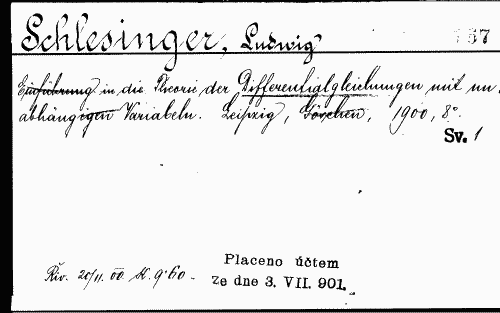 Schlesinger, Ludwig
57
Einführung in die Theorie der Differentialgleichungen mit un-
abhängigen Variabeln. Leipzig, Göschen, 1900, 8°.
Sv. 1
Placeno účtem
Řiv. 20/11. 00. K. 9·60 -
ze dne 3. VII. 901.